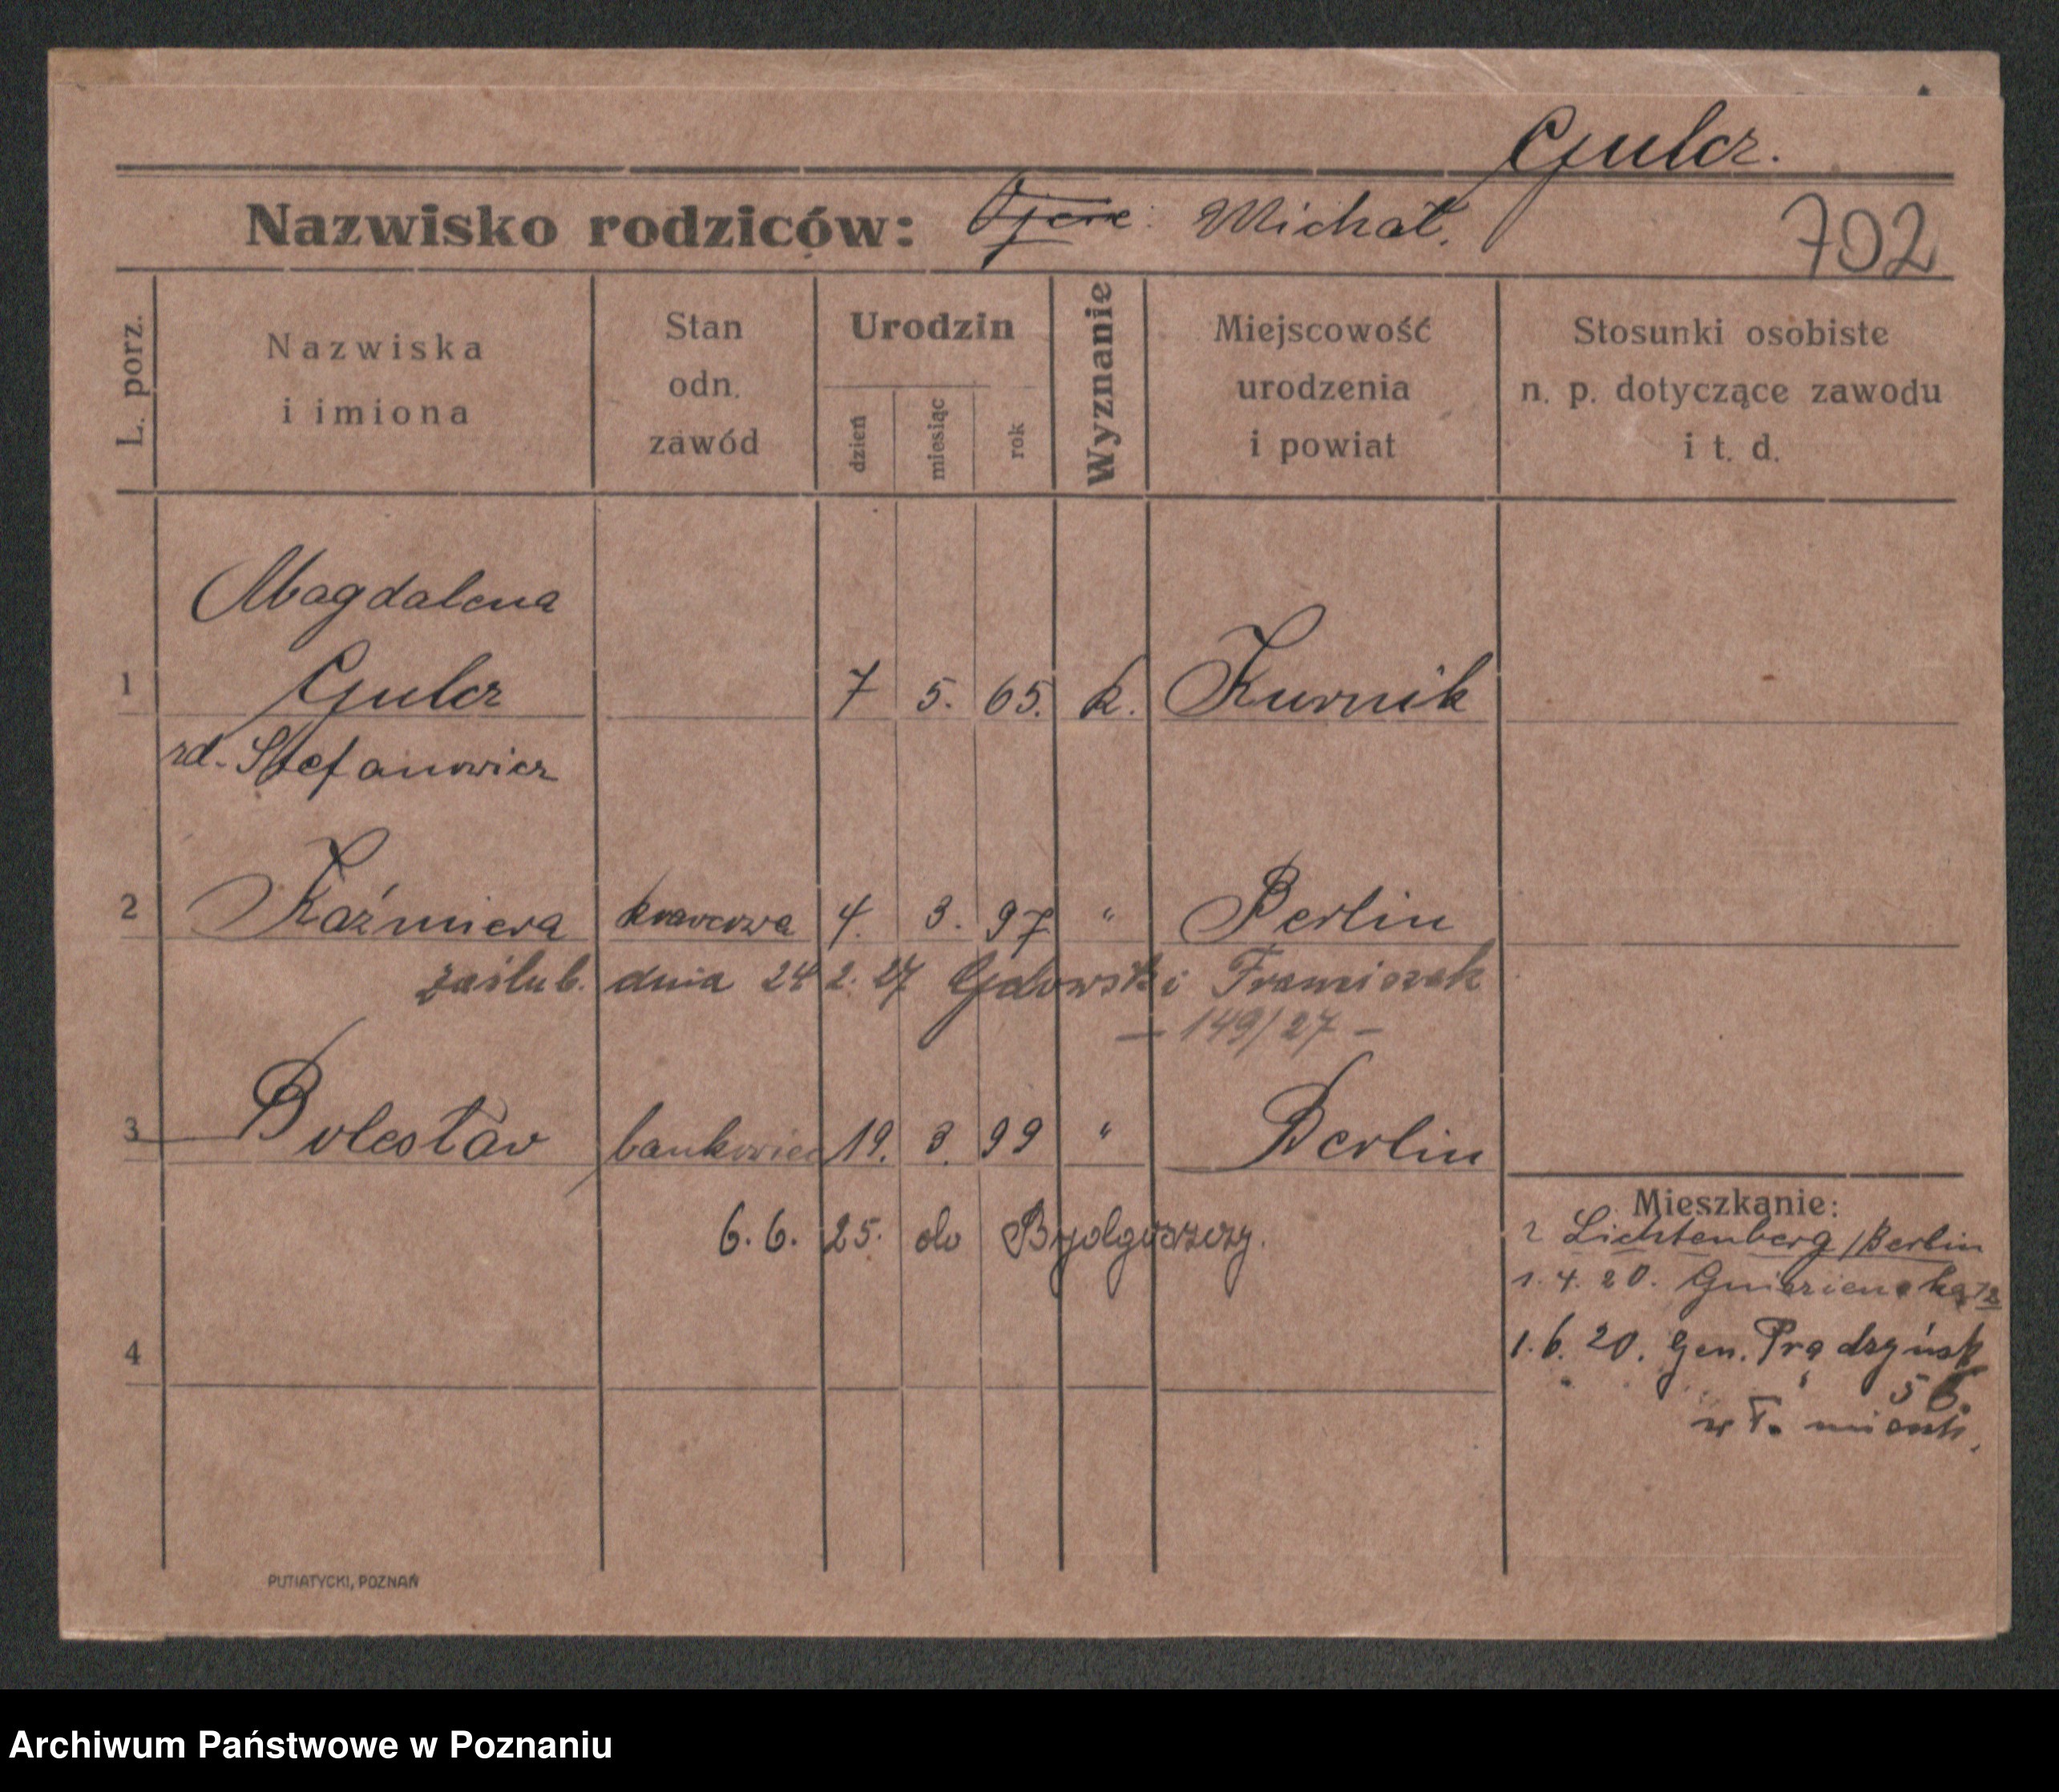 Gulcz.
Nazwisko rodziców: Michał.
702
L. porz.
Nazwiska
i imiona
Stan
odn.
zawód
Urodzin
dzień
miesiąc
rok
Wyznanie
Miejscowość
urodzenia
i powiat
Stosunki osobiste
n. p. dotyczące zawodu
i t. d.
Magdalena
1 Gulcz 7 5. 65. k. Kurnik
zd. Stefanowicz
2 Kaźmiera krawcowa 4. 3. 97 " Berlin
zaślub. dnia 24 2. 27 Franciszek
— 149/27 —
3 Bolesław bankowiec 19. 3. 99 " Berlin
6. 6. 25. do Bydgoszczy.
Mieszkanie:
z Lichtenberg/Berlin
1. 4. 20. Gnieźnieńska 12
1. 6. 20. Gen. Prądzyńsk
56.
wł. mieszk.
4
PUTIATYCKI, POZNAŃ
Archiwum Państwowe w Poznaniu